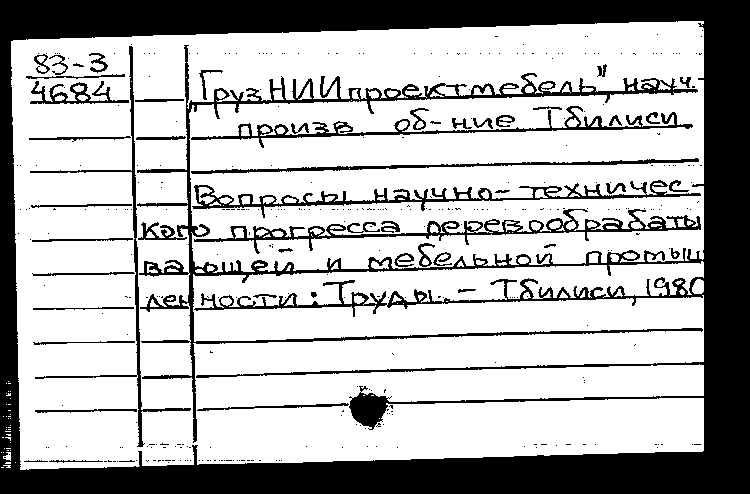 83-3
4684
„ГрузНИИпроектмебель", науч.-
произв об-ние Тбилиси.
Вопросы научно-техничес-
кого прогресса деревообрабаты
вающей и мебельной промыш
ленности: Труды. - Тбилиси, 1980